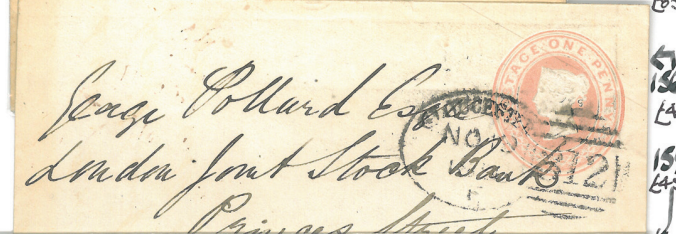 George Pollard Esq
London Joint Stock Bank
Princes Street
POSTAGE ONE PENNY
GLOUCESTER
NO
312